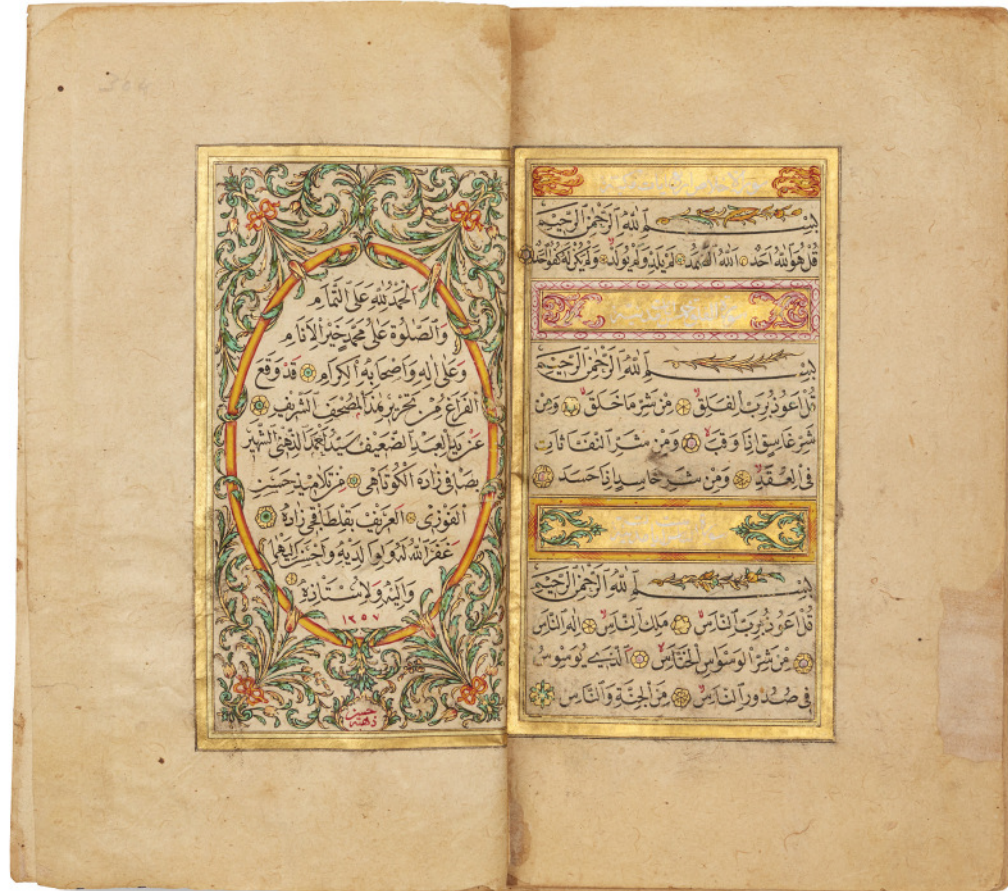 بسم الله الرحمن الرحيم
قل هو الله احد الله الصمد لم يلد ولم يولد ولم يكن له كفوا احد
بسم الله الرحمن الرحيم
قل اعوذ برب الفلق من شر ما خلق ومن
شر غاسق اذا وقب ومن شر النفاثات
في العقد ومن شر حاسد اذا حسد
بسم الله الرحمن الرحيم
قل اعوذ برب الناس ملك الناس اله الناس
من شر الوسواس الخناس الذي يوسوس
في صدور الناس من الجنة والناس
الحمد لله على التمام
والصلوة على محمد خير الانام
وعلى اله واصحابه الكرام قد وقع
الفراغ من تحرير هذا المصحف الشريف
عن يد العبد الضعيف سيد احمد الذهني الشهير
بصافي زاده الكوتاهي من تلاميذ حسن
الفوزي العريف بقلطاقجي زاده
غفر الله له ولوالديه واحسن اليهما
واليه ولاستاذه
١٢٥٧
ذهبه حسين